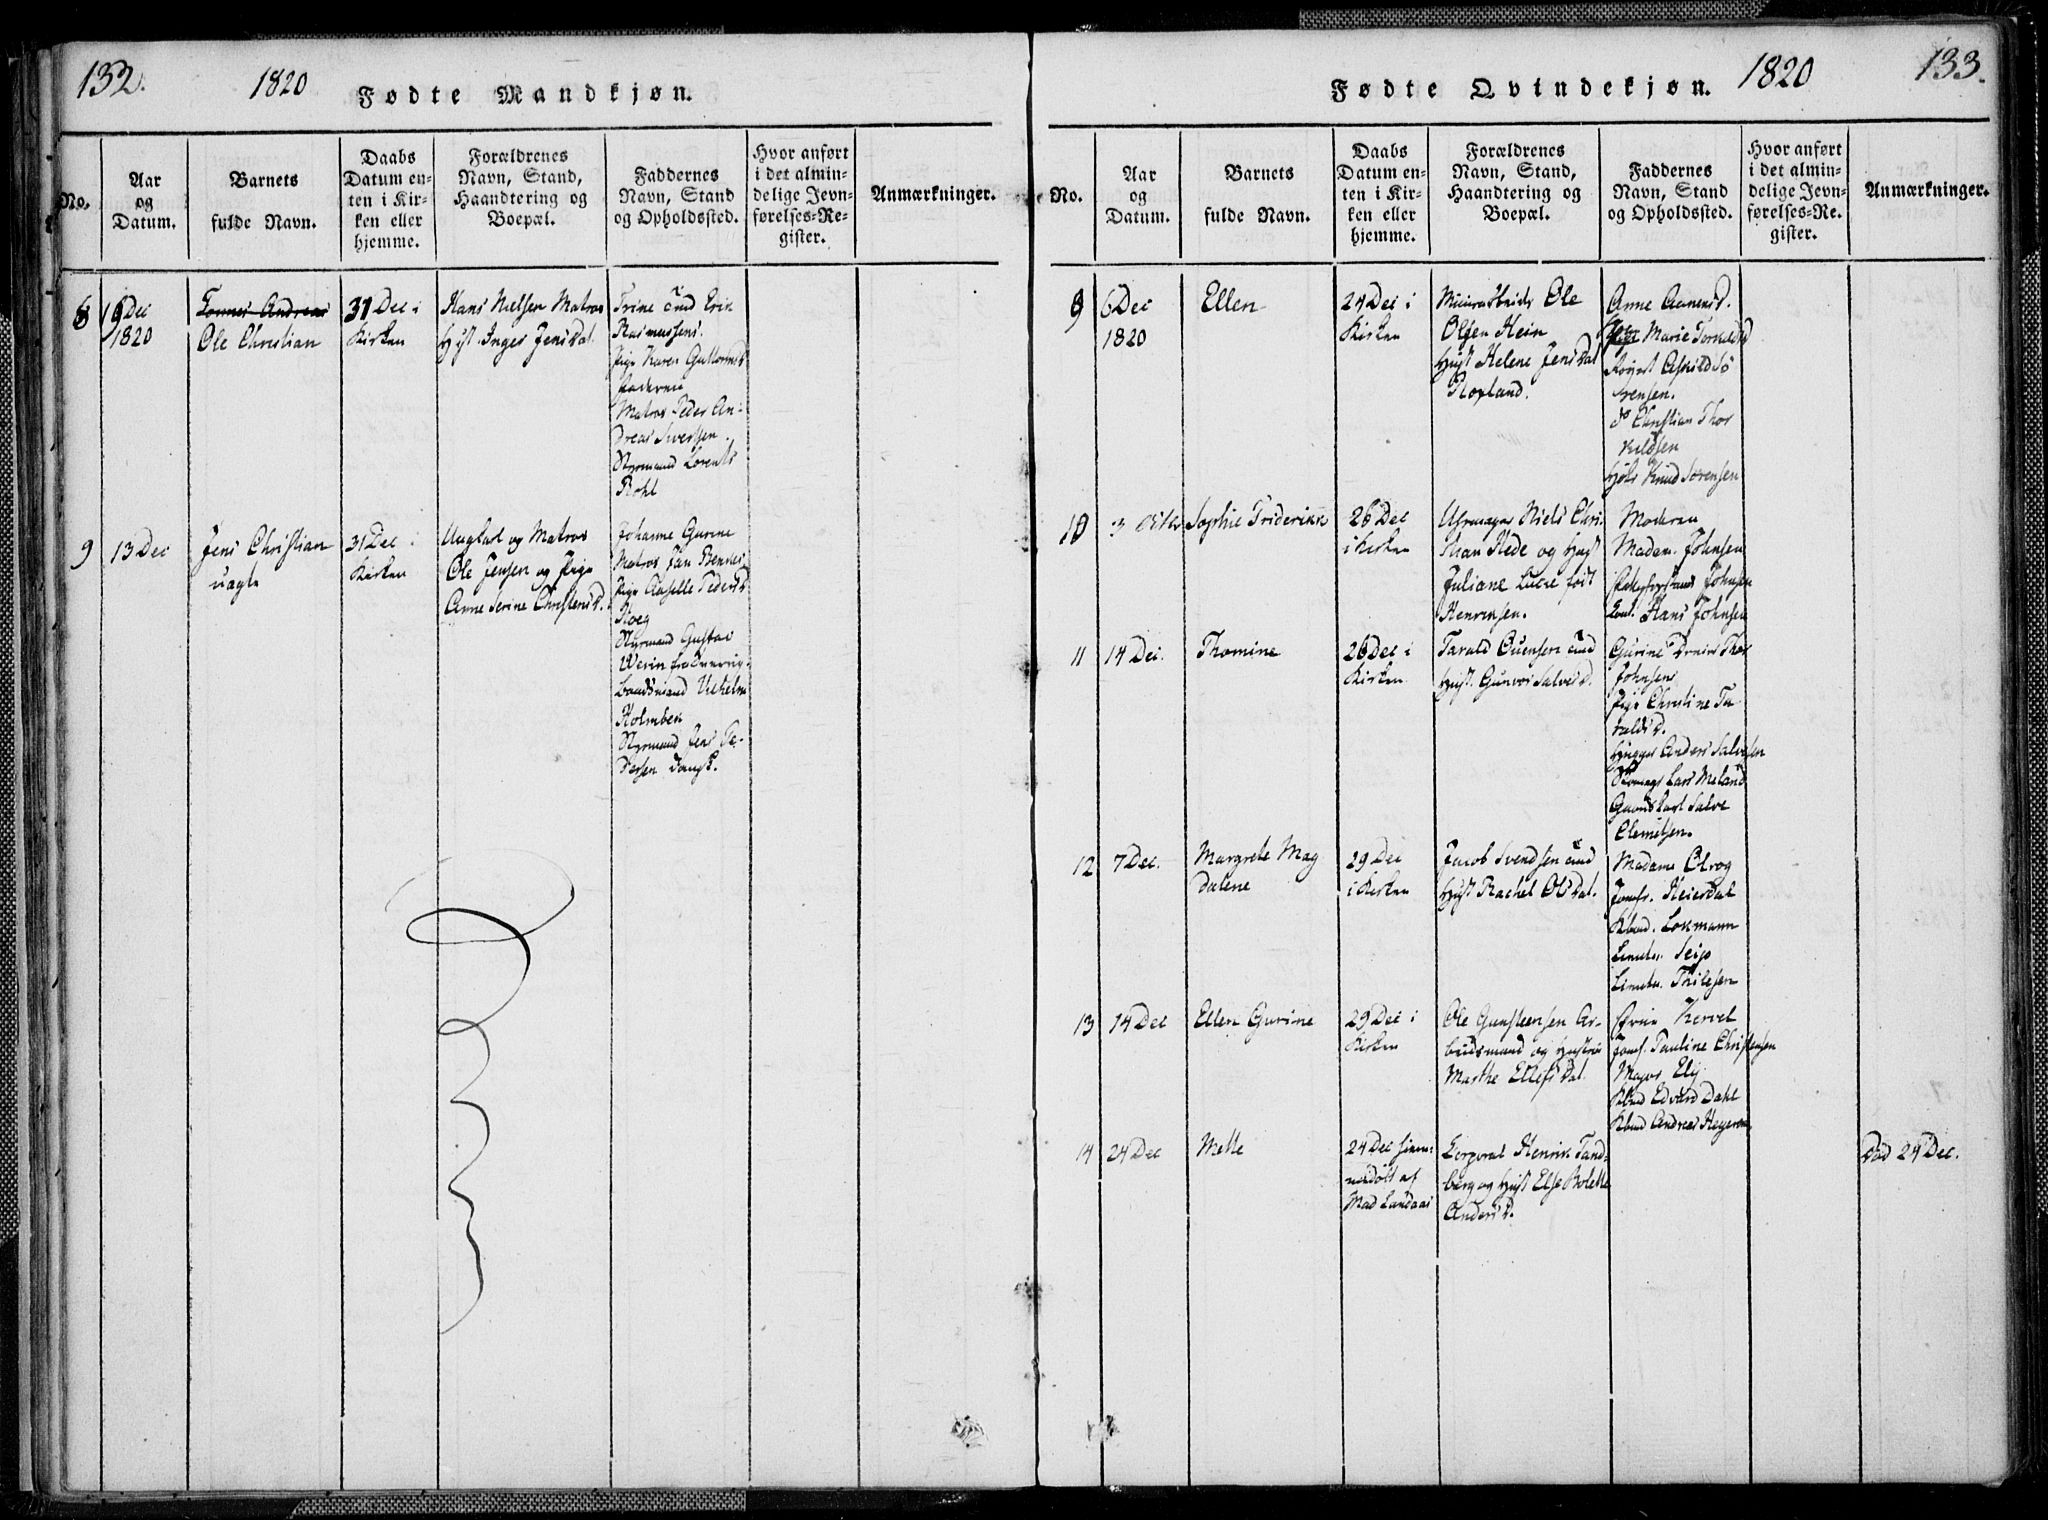 132.
1820
Fødte Mandkjøn.
No.
Aar
og
Datum.
Barnets
fulde Navn.
Daabs
Datum en-
ten i Kir-
ken eller
hjemme.
Forældrenes
Navn, Stand,
Haandtering og
Boepæl.
Faddernes
Navn, Stand
og Opholdssted.
Hvor anført
i det almin-
delige Jevn-
førelses-Re-
gister.
Anmærkninger.
8
Dec
1820
Tønnes Andreas
Ole Christian
31 Dec i
Kirken
Hans Nielsen Matros
Hust. Inger Jensdal.
Trine und Erik
Rasmussens.
Pige Karen Guttormsd
Faderen
Matros Peder An-
dreas Sivertsen.
Styrmand Lorents
Rohl
9
13 Dec
Jens Christian
uægte
31 Dec i
Kirken
Ungkarl og Matros
Ole Jensen og Pige
Anne Serine Christensd.
Johanne Gurine
Matros Jan
Pige Pedersd
Styrmand Gustav
Werin fra
Baadsmand Vilhelm
Holmben
Styrmand Jens Pe-
dersen
133.
1820
Fødte Qvindekjøn.
No.
Aar
og
Datum.
Barnets
fulde Navn.
Daabs
Datum en-
ten i Kir-
ken eller
hjemme.
Forældrenes
Navn, Stand,
Haandtering og
Boepæl.
Faddernes
Navn, Stand
og Opholdssted.
Hvor anført
i det almin-
delige Jevn-
førelses-Re-
gister.
Anmærkninger.
9
6 Dec
1820
Ellen
24 Dec i
Kirken
Ole
Olsen Hein
Hust Helene Jensdal
Roxland.
Anne Aanensd.
Pige Marie Torkildsd
Askild Sø
rensen.
do Christian Thor
kildsen
Knud Sørensen
10
3 Octbr
Sophie Friderikke
26 Dec
i Kirken
Uhrmager Niels Chri-
stian Stede og Hust
Juliane Lucie født
Henrensen.
Moderen
Madm. Johnsen
Johnsen
Hans Johnsen
11
14 Dec.
Thomine
26 Dec i
Kirken
Tarald Ouensen und
Hust. Gunvor Salvesd.
Gurine Thor
Johnsens
Pige Christine Ta
raldsd.
Anders Salvesen
Lars Meland
Salve
Clemetsen.
12
7 Dec.
Margrete Mag
dalene
29 Dec
i Kirken
Jacob Svendsen und
Hust Rachel Olsdal.
Madame Olrog
Jomfr. Heierdal
Kbmd. Lokmann
Lieutn. Seip
Lieutn. Thilesen
13
14 Dec
Ellen Gurine
29 Dec i
Kirken
Ole Gunsteensen Ar-
beidsmand og Hustrue
Marthe Ellefsdal
Kervel
Jomf. Pauline Christensen
Major Ely
Kbmd Edvard Dahl
Kbmd Andreas Heyerm
14
24 Dec
Mette
24 Dec hiem-
medøbt af
Mad Landaas
Corporal Henrik Tand-
berg og Hust Else Bolette
Andersd.
Død 24 Dec.